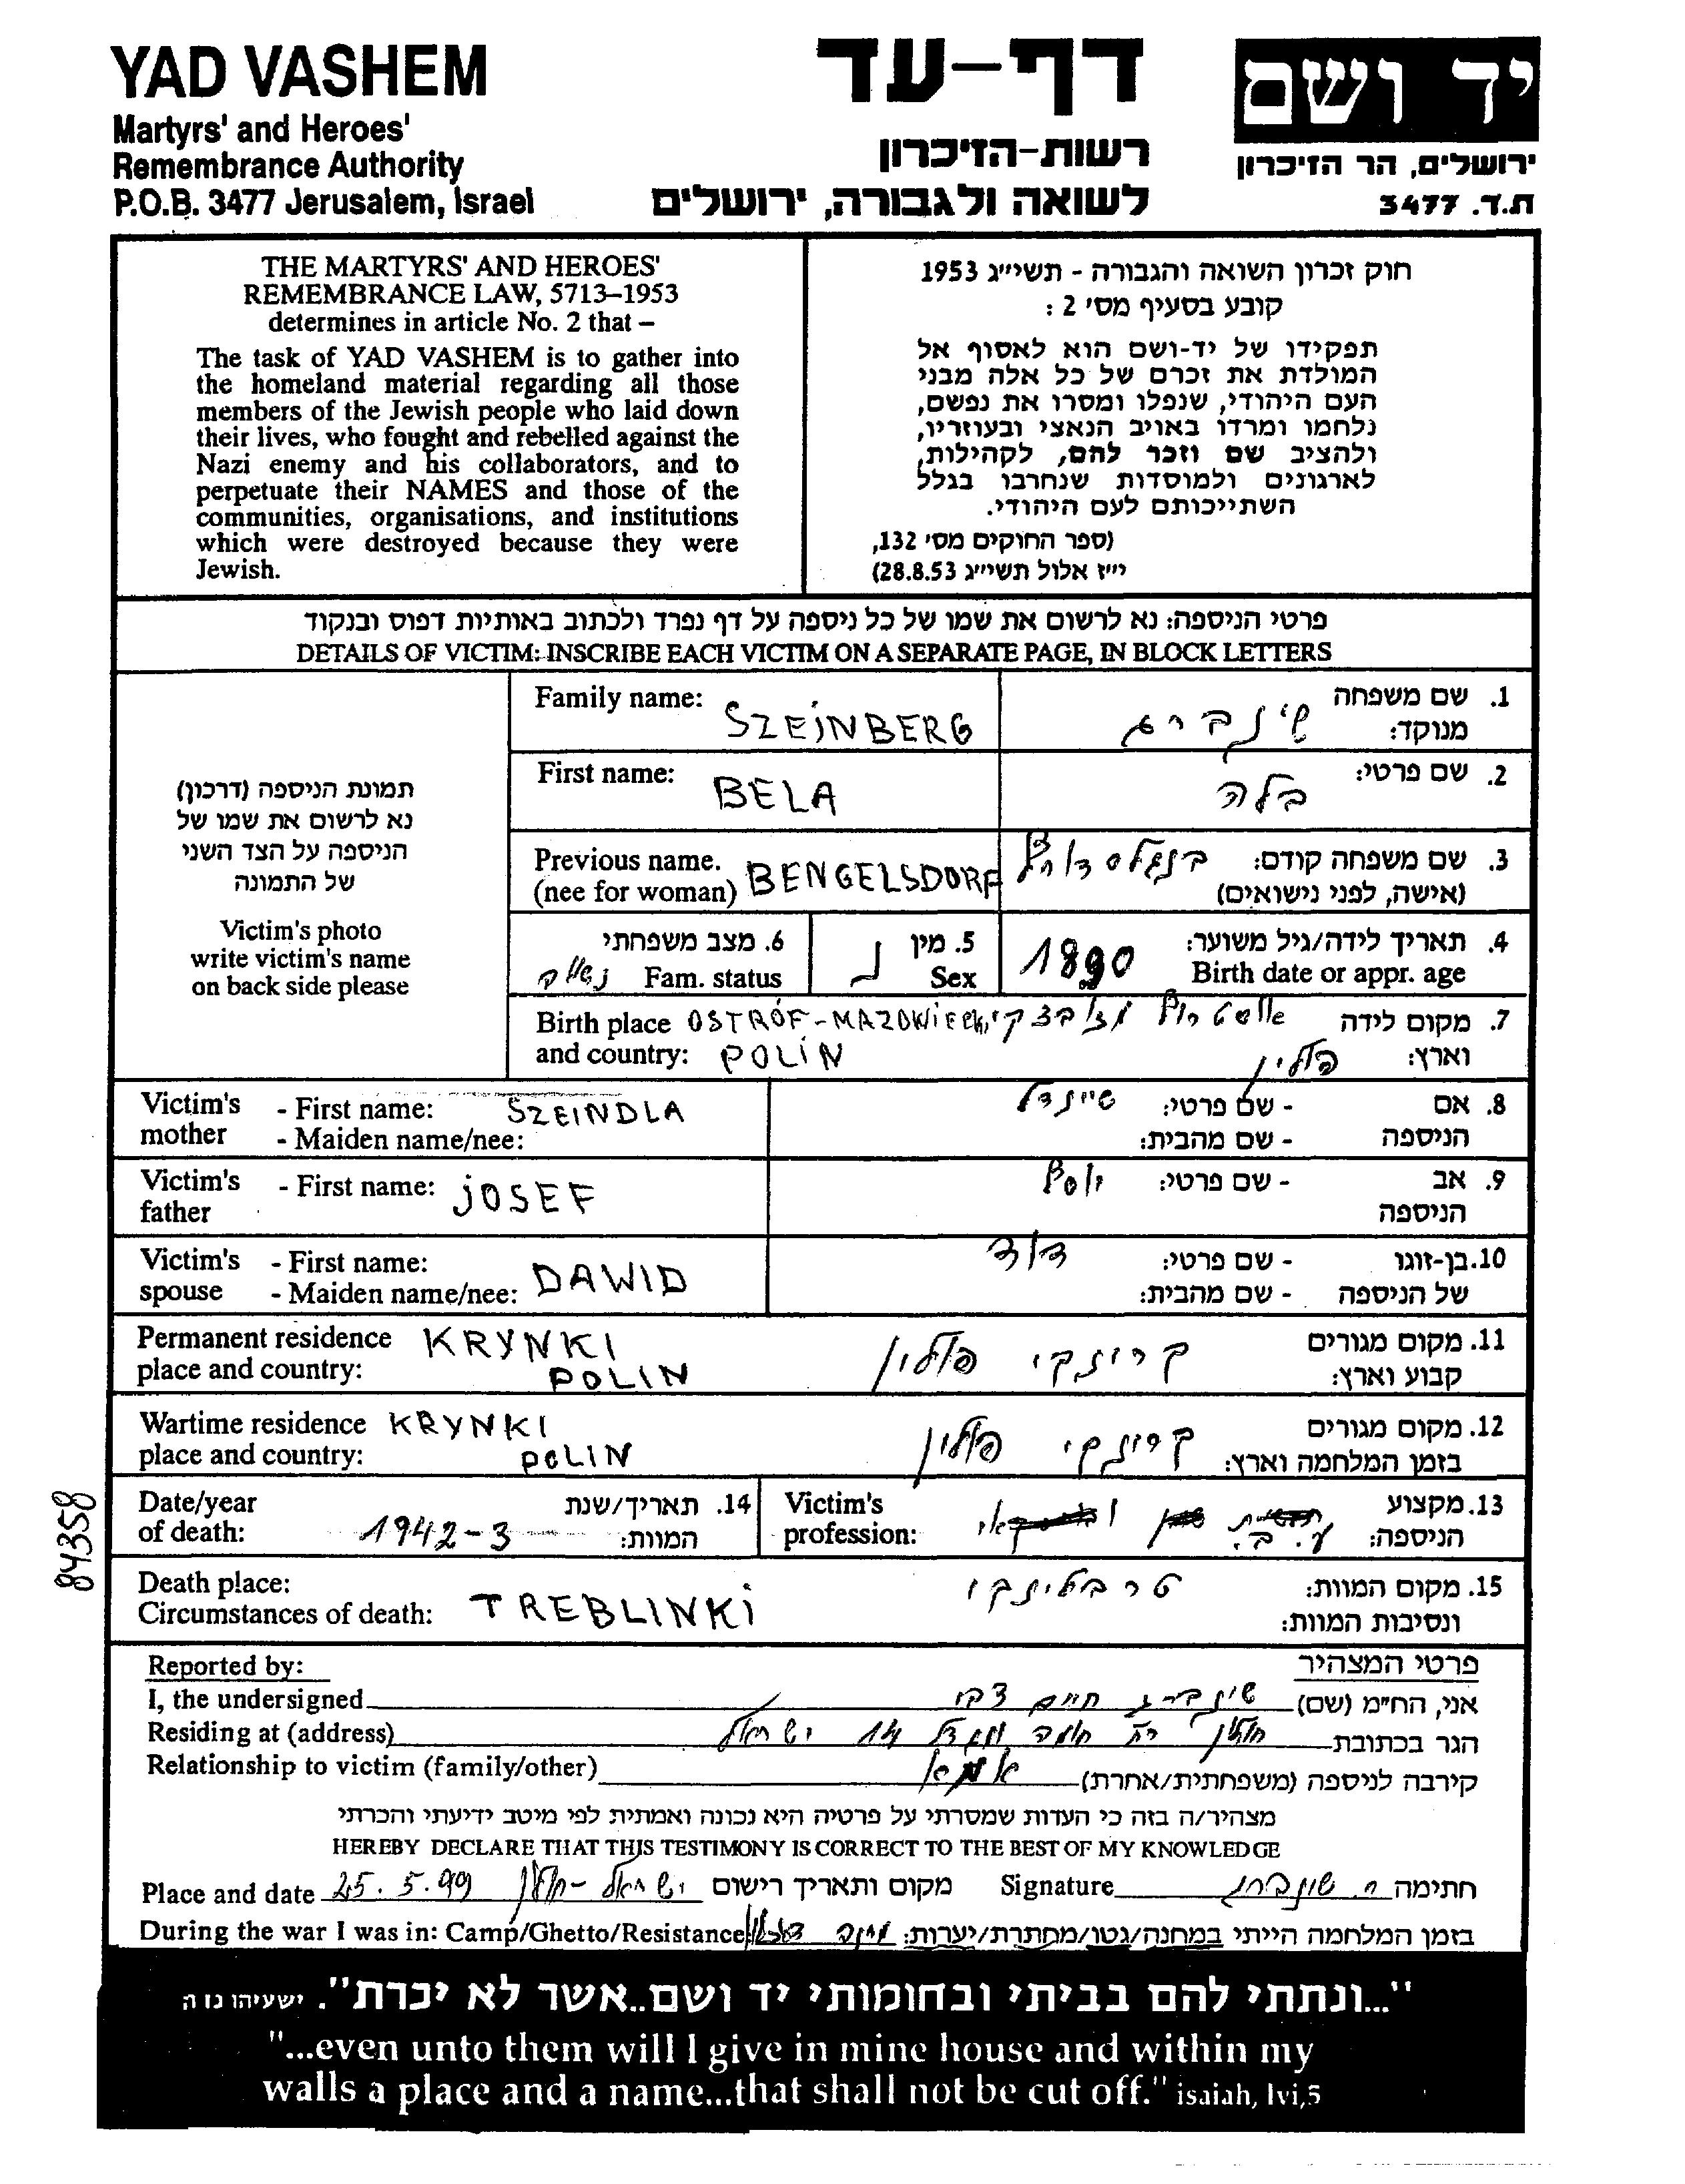 YAD VASHEM
Martyrs' and Heroes'
Remembrance Authority
P.O.B. 3477 Jerusalem, Israel
דף-עד
רשות-הזיכרון
לשואה ולגבורה, ירושלים
יד ושם
ירושלים, הר הזיכרון
ת.ד. 3477
THE MARTYRS' AND HEROES'
REMEMBRANCE LAW, 5713–1953
determines in article No. 2 that –
The task of YAD VASHEM is to gather into
the homeland material regarding all those
members of the Jewish people who laid down
their lives, who fought and rebelled against the
Nazi enemy and his collaborators, and to
perpetuate their NAMES and those of the
communities, organisations, and institutions
which were destroyed because they were
Jewish.
חוק זכרון השואה והגבורה - תשי״ג 1953
קובע בסעיף מס' 2 :
תפקידו של יד-ושם הוא לאסוף אל
המולדת את זכרם של כל אלה מבני
העם היהודי, שנפלו ומסרו את נפשם,
נלחמו ומרדו באויב הנאצי ובעוזריו,
ולהציב שם וזכר להם, לקהילות,
לארגונים ולמוסדות שנחרבו בגלל
השתייכותם לעם היהודי.
(ספר החוקים מס' 132,
י״ז אלול תשי״ג 28.8.53)
פרטי הניספה: נא לרשום את שמו של כל ניספה על דף נפרד ולכתוב באותיות דפוס ובנקוד
DETAILS OF VICTIM: INSCRIBE EACH VICTIM ON A SEPARATE PAGE, IN BLOCK LETTERS
תמונת הניספה (דרכון)
נא לרשום את שמו של
הניספה על הצד השני
של התמונה
Victim's photo
write victim's name
on back side please
Family name: SZEINBERG
1. שם משפחה
מנוקד: שינברג
First name: BELA
2. שם פרטי: בלה
Previous name.
(nee for woman) BENGELSDORF
3. שם משפחה קודם: בנגלסדורף
(אישה, לפני נישואים)
4. תאריך לידה/גיל משוער:
Birth date or appr. age 1890
5. מין
Sex נ
6. מצב משפחתי
Fam. status נשואה
Birth place OSTROF-MAZOWIECKI
and country: POLIN
7. מקום לידה
וארץ: פולין
Victim's mother
- First name: SZEINDLA
- Maiden name/nee:
8. אם הניספה
- שם פרטי: שיינדל
- שם מהבית:
Victim's father
- First name: JOSEF
9. אב הניספה
- שם פרטי: יוסף
Victim's spouse
- First name:
- Maiden name/nee: DAWID
10. בן-זוגו של הניספה
- שם פרטי: דוד
- שם מהבית:
Permanent residence KRYNKI
place and country: POLIN
11. מקום מגורים
קבוע וארץ: קרינקי פולין
Wartime residence KRYNKI
place and country: POLIN
12. מקום מגורים
בזמן המלחמה וארץ: קרינקי פולין
Date/year
of death: 1942-3
14. תאריך/שנת
המוות:
Victim's
profession:
13. מקצוע
הניספה: ע. ב.
84358
Death place:
Circumstances of death: TREBLINKI
15. מקום המוות: טרבלינקי
ונסיבות המוות:
Reported by:
פרטי המצהיר
I, the undersigned
אני, הח״מ (שם) שינברג חיים צבי
Residing at (address)
הגר בכתובת חולון רח חומה ומגדל 14 ישראל
Relationship to victim (family/other)
קירבה לניספה (משפחתית/אחרת) אמא
מצהיר/ה בזה כי העדות שמסרתי על פרטיה היא נכונה ואמתית לפי מיטב ידיעתי והכרתי
HEREBY DECLARE THAT THIS TESTIMONY IS CORRECT TO THE BEST OF MY KNOWLEDGE
Place and date 25.5.99 ישראל - חולון מקום ותאריך רישום
Signature ח. שינברג חתימה
During the war I was in: Camp/Ghetto/Resistance
בזמן המלחמה הייתי במחנה/גטו/מחתרת/יערות:
"...ונתתי להם בביתי ובחומותי יד ושם..אשר לא יכרת". ישעיהו נו ה
"...even unto them will I give in mine house and within my
walls a place and a name...that shall not be cut off." isaiah, lvi,5